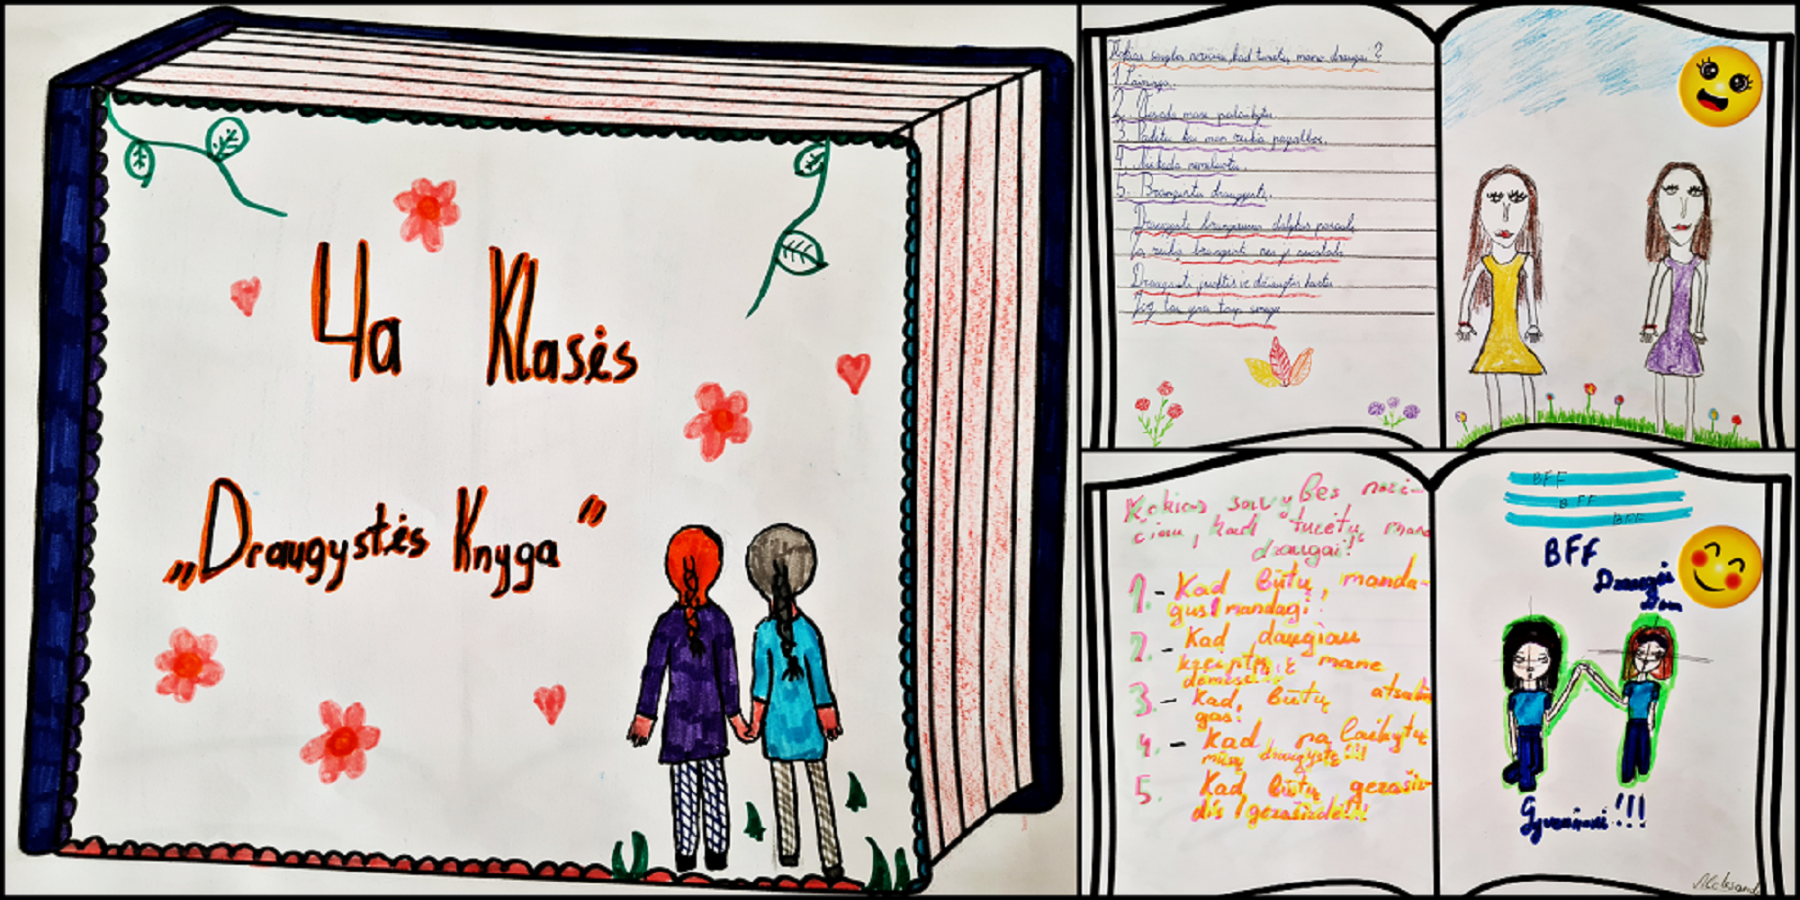 4a Klasės
„Draugystės Knyga“
Kokias savybes norėčiau, kad turėtų mano draugai?
1. Laiminga.
2. Visada mane palaikytų.
3. Padėtų kai man reikia pagalbos.
4. Niekada nemeluotų.
5. Brangintų draugystę.
Draugystė brangiausias dalykas pasauly
Ją reikia branginti nes ji nuostabi
Draugauti, juoktis ir džiaugtis kartu
Jog tau yra taip smagu
Kokias savybes norė-
čiau, kad turėtų mano
draugai?
1. - Kad būtų, manda-
gus/mandagi!
2. - Kad daugiau
kreiptų į mane
dėmesio
3. - Kad, būtų atsakin
gas!
4. - Kad pa laikytų
mūsų draugystę!!!
5. Kad būtų geraširr-
dis/geraširdė!!!
BFF
BFF
BFF
BFF
Draugės
Gyvenimui!!!